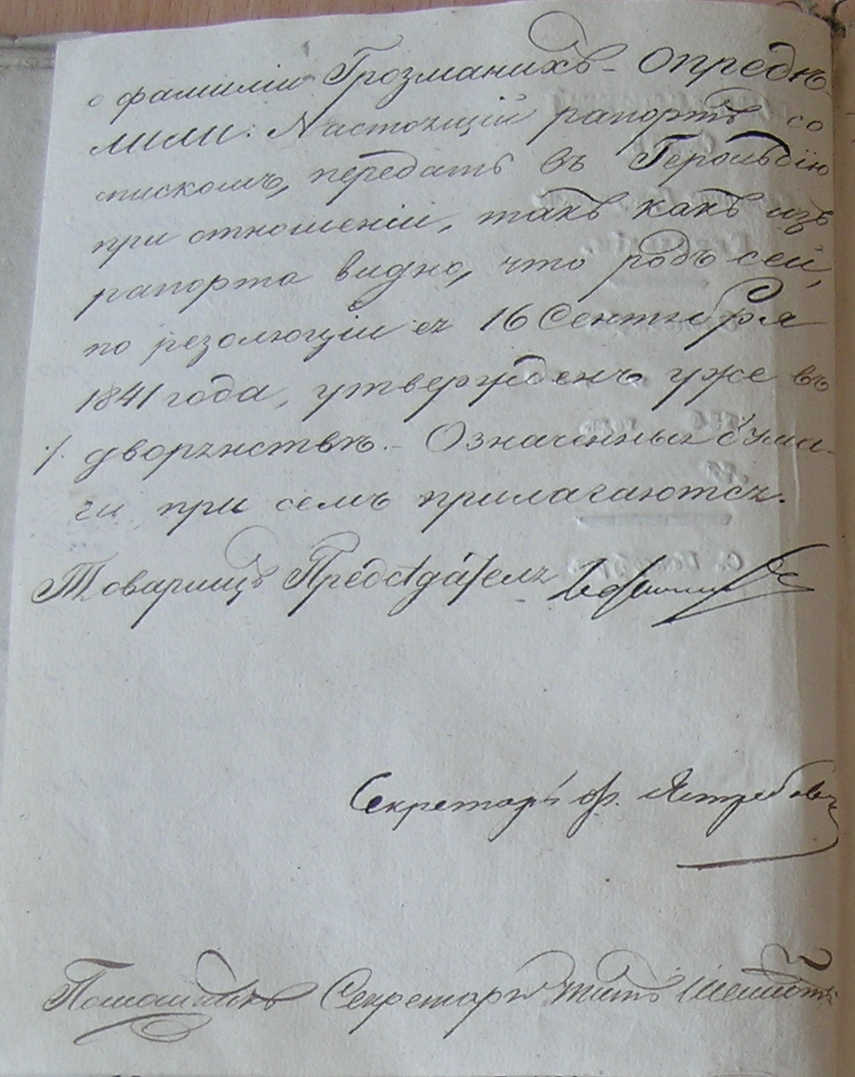 о фамиліи Грозманихъ - опредѣ-
лили: Настоящій рапортъ со
спискомъ, передать въ Герольдію
при отношеніи, такъ какъ изъ
рапорта видно, что родъ сей,
по резолюціи ея 16 Сентября
1841 года, утвержденъ уже въ
·/. дворянствѣ. - Означенныя бума-
ги при семъ прилагаются.
Товарищъ Предсѣдателя
Секретарь Ф. Ястребовъ
Помощникъ Секретаря Титъ